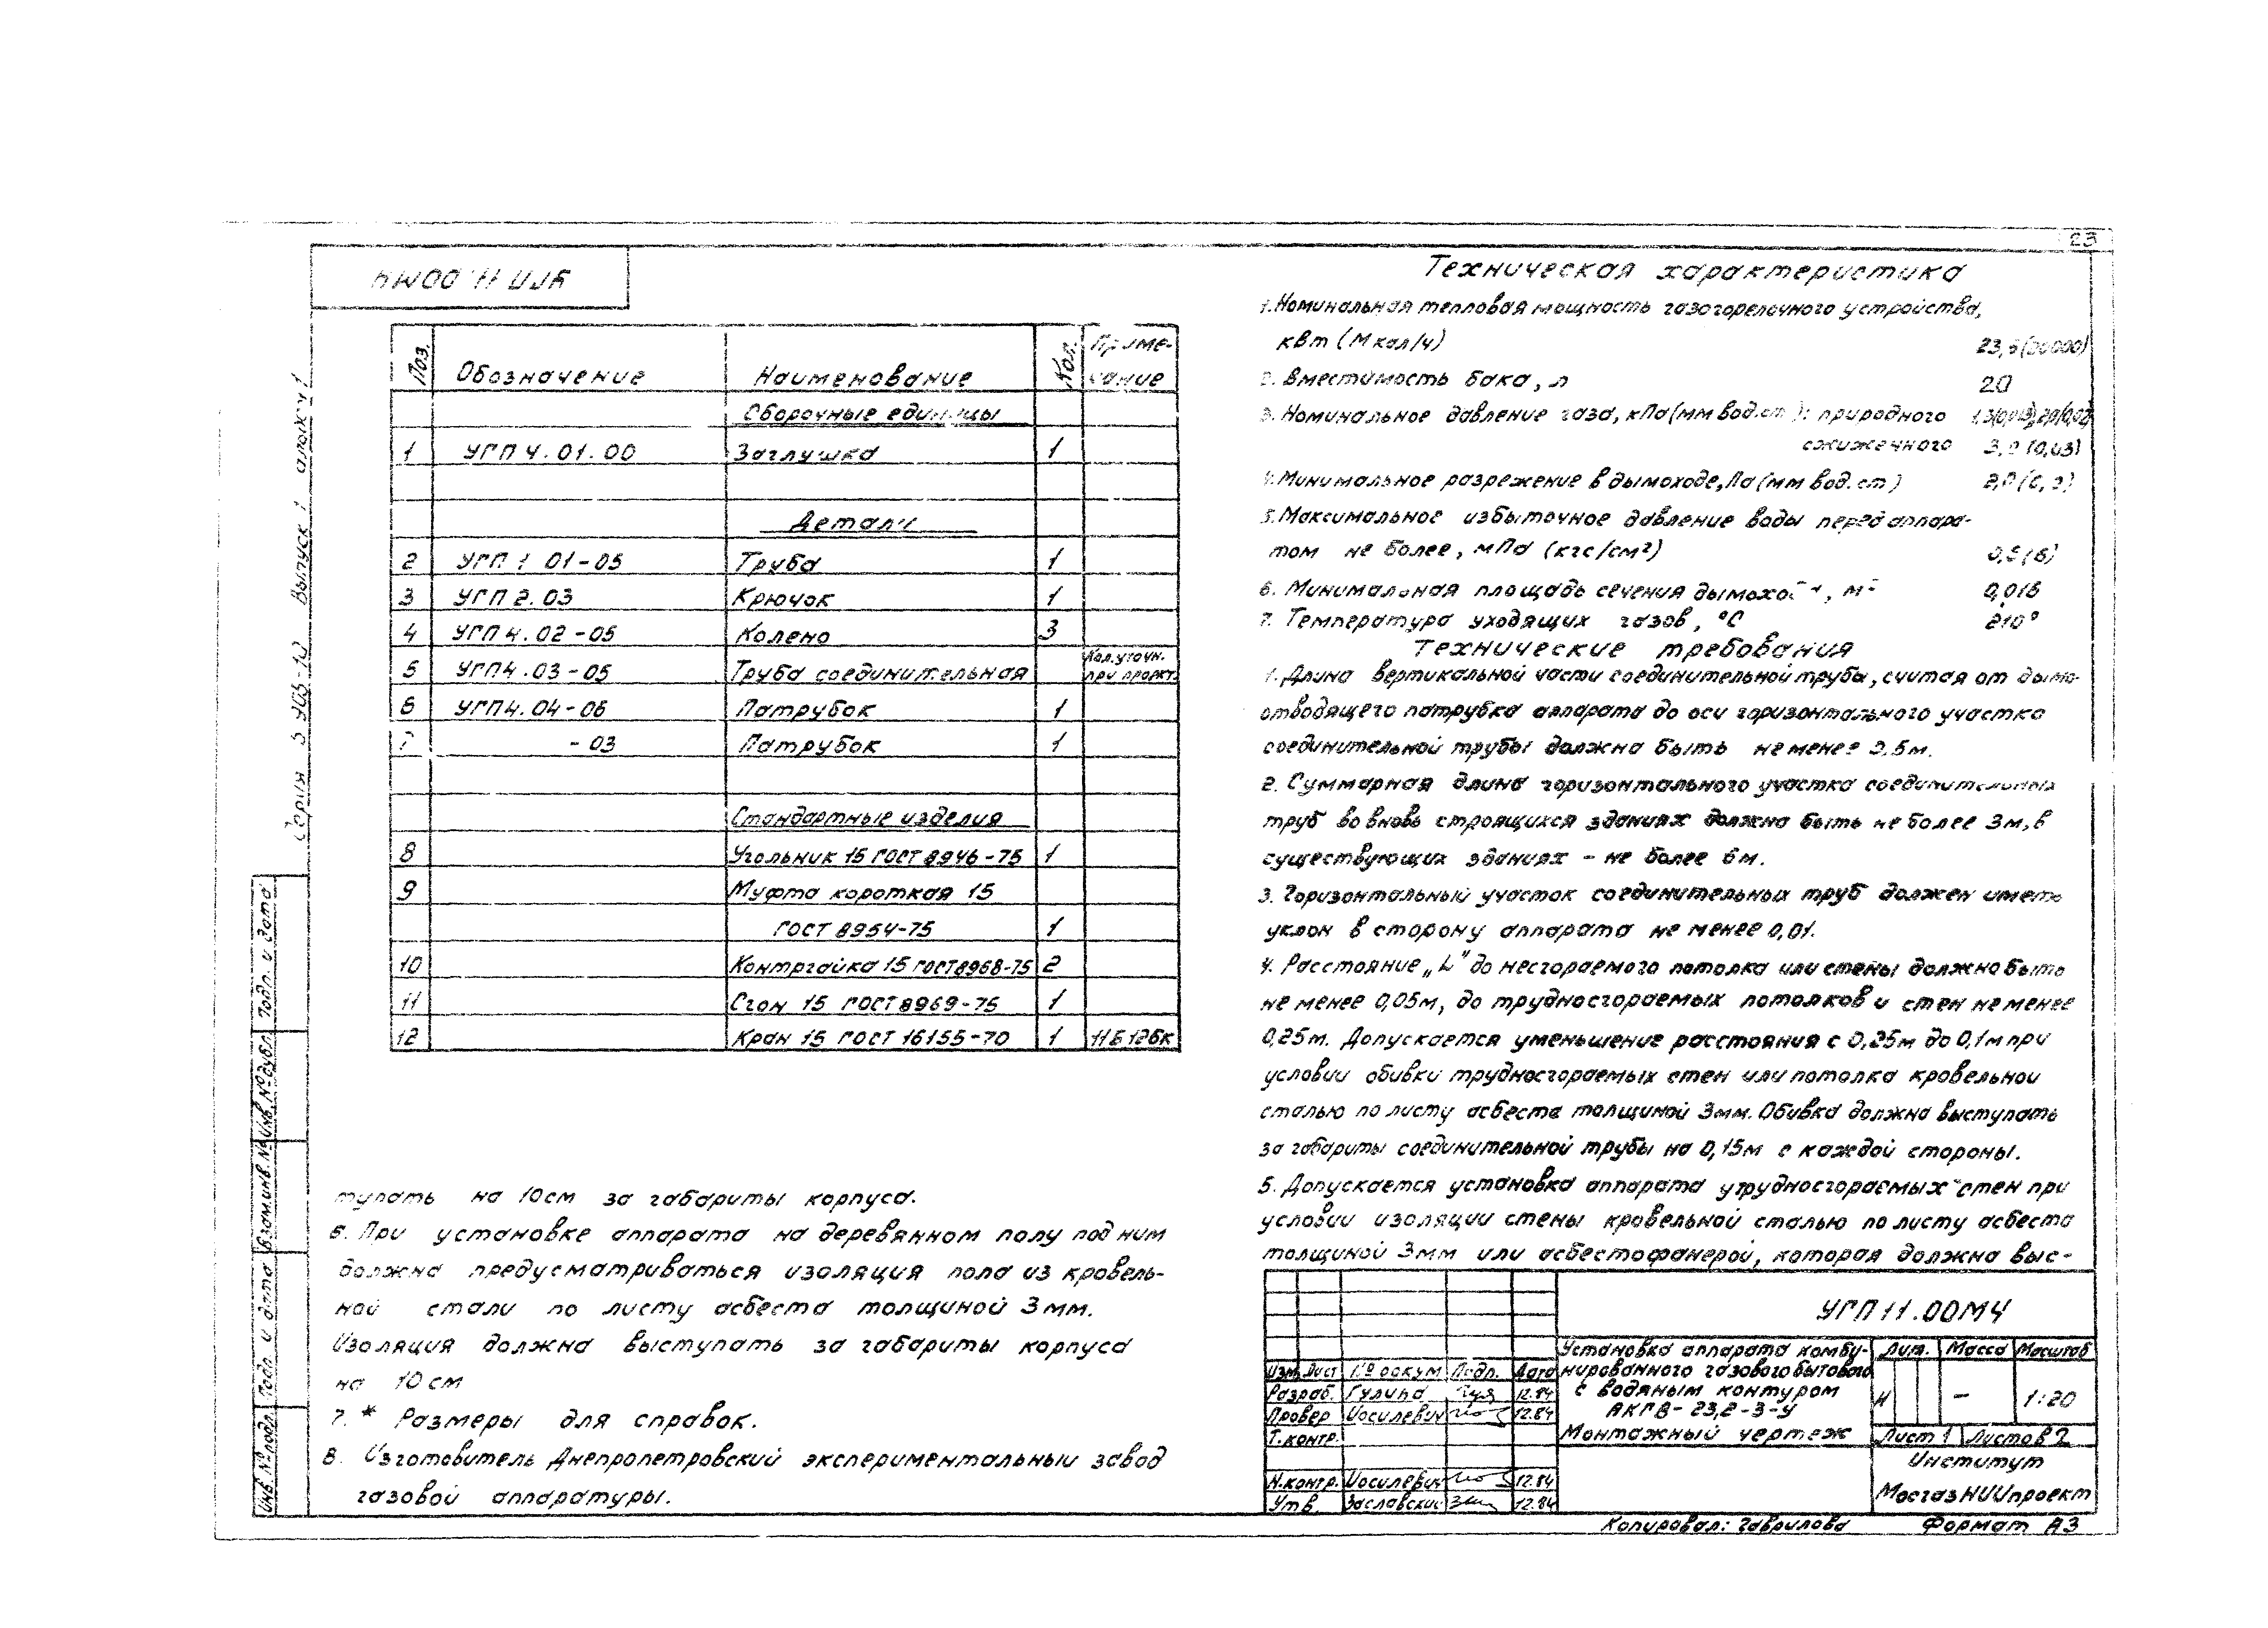 23
УГП 11.00МЧ
Серия 5 903-10 Выпуск 1 альбом 1
Поз. Обозначение Наименование Кол. Приме-
чание
Сборочные единицы
1 УГП 4.01.00 Заглушка 1
Детали
2 УГП 1 01-05 Труба 1
3 УГП 2.03 Крючок 1
4 УГП 4.02-05 Колено 3
5 УГП 4.03-05 Труба соединительная Кол.уточн.
при проект.
6 УГП 4.04-06 Патрубок 1
7 -03 Патрубок 1
Стандартные изделия
8 Угольник 15 ГОСТ 8946-75 1
9 Муфта короткая 15
ГОСТ 8954-75 1
10 Контргайка 15 ГОСТ 8968-75 2
11 Сгон 15 ГОСТ 8969-75 1
12 Кран 15 ГОСТ 16155-70 1 11Б12бк
тупать на 10см за габариты корпуса.
6. При установке аппарата на деревянном полу под ним
должна предусматриваться изоляция пола из кровель-
ной стали по листу асбеста толщиной 3мм.
Изоляция должна выступать за габариты корпуса
на 10 см
7. * Размеры для справок.
8. Изготовитель Днепропетровский экспериментальный завод
газовой аппаратуры.
Техническая характеристика
1. Номинальная тепловая мощность газогорелочного устройства,
кВт (Мкал/ч)
2. Вместимость бака, л 20
3. Номинальное давление газа, кПа (мм вод.ст): природного
сжиженного 3,0 (0,03)
4. Минимальное разрежение в дымоходе, Па (мм вод. ст)
5. Максимальное избыточное давление воды перед аппара-
том не более, мПа (кгс/см²) 0,6 (6)
6. Минимальная площадь сечения дымохода, м² 0,016
7. Температура уходящих газов, °С 210°
Технические требования
1. Длина вертикальной части соединительной трубы, считая от дымо-
отводящего патрубка аппарата до оси горизонтального участка
соединительной трубы должна быть не менее 0,5м.
2. Суммарная длина горизонтального участка соединительных
труб во вновь строящихся зданиях должна быть не более 3м, в
существующих зданиях - не более 6м.
3. Горизонтальный участок соединительных труб должен иметь
уклон в сторону аппарата не менее 0,01.
4. Расстояние „L" до несгораемого потолка или стены должно быть
не менее 0,05м, до трудносгораемых потолков и стен не менее
0,25м. Допускается уменьшение расстояния с 0,25м до 0,1м при
условии обивки трудносгораемых стен или потолка кровельной
сталью по листу асбеста толщиной 3мм. Обивка должна выступать
за габариты соединительной трубы на 0,15м с каждой стороны.
5. Допускается установка аппарата у трудносгораемых стен при
условии изоляции стены кровельной сталью по листу асбеста
толщиной 3мм или асбестофанерой, которая должна выс-
УГП 11.00МЧ
Установка аппарата комби-
нированного газового бытового
с водяным контуром
АКГВ-23,2-3-У
Монтажный чертеж
Лит. Масса Масштаб
И - 1:20
Лист 1 Листов 2
Институт
МосгазНИИпроект
Изм. Лист № докум Подп. Дата
Разраб. Гулина 12.84
Провер Иосилевич 12.84
Т.контр.
Н.контр. Иосилевич 12.84
Утв. Заславский 12.84
Копировал: Гаврилова Формат А3
Инв.№ подл. Подп. и дата Взам.инв.№ Инв.№ дубл. Подп. и дата